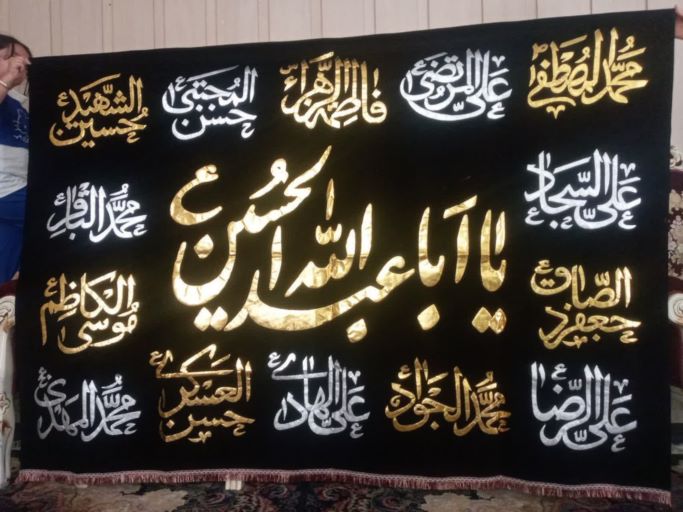 محمد المصطفی
علی المرتضی ع
فاطمة الزهراء
المجتبی ع حسن
الشهید ع حسین
علی السجاد ع
محمد الباقر ع
یا ابا عبدالله الحسین ع
الصادق ع جعفر
الکاظم ع موسی
علی الرضا ع
محمد الجواد ع
علی الهادی ع
العسکری ع حسن
محمد المهدی ع